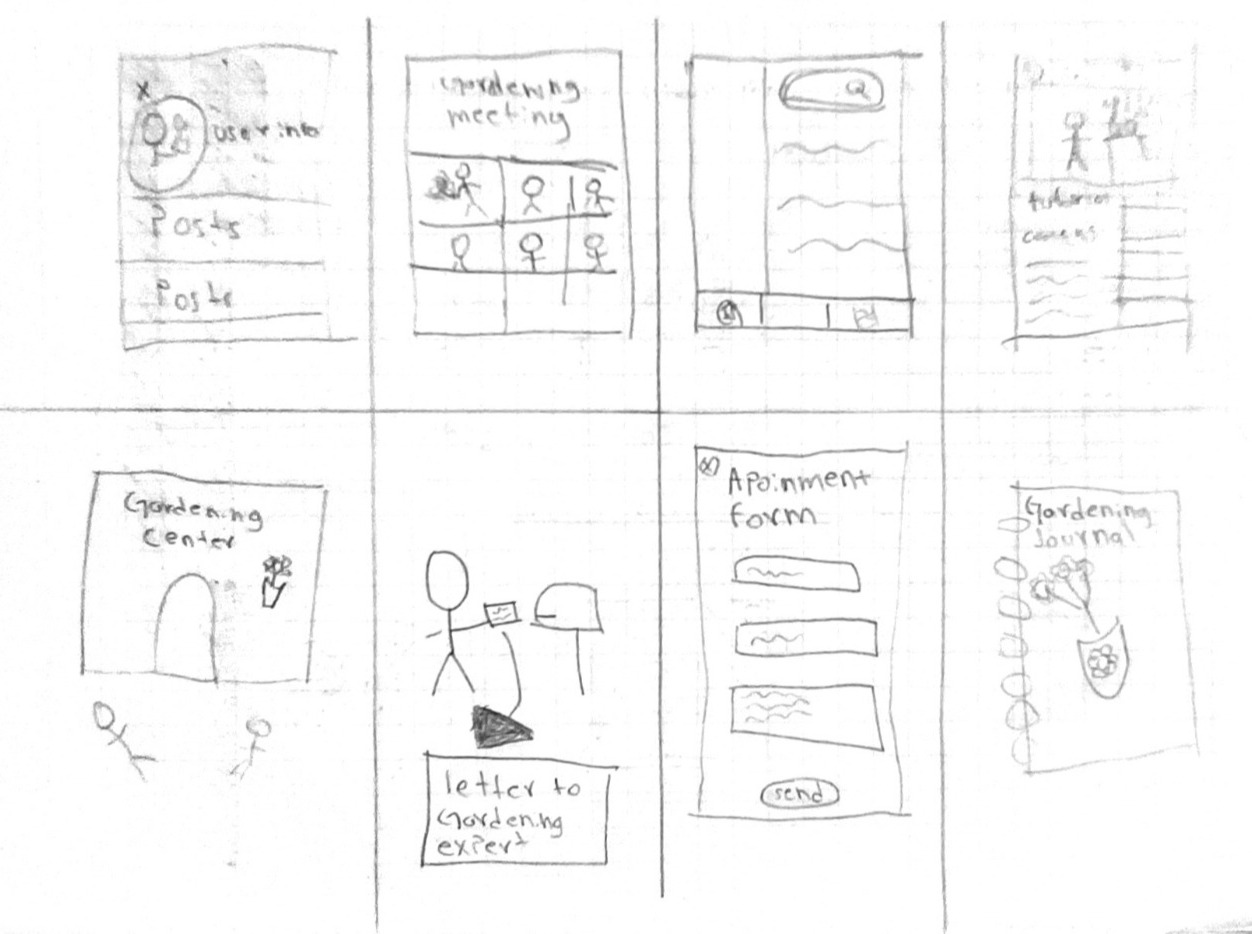 x
user info
Posts
Posts
Gardening
meeting
tutorial
Gardening
Center
letter to
Gardening
expert
x
Apoinment
form
send
Gardening
Journal